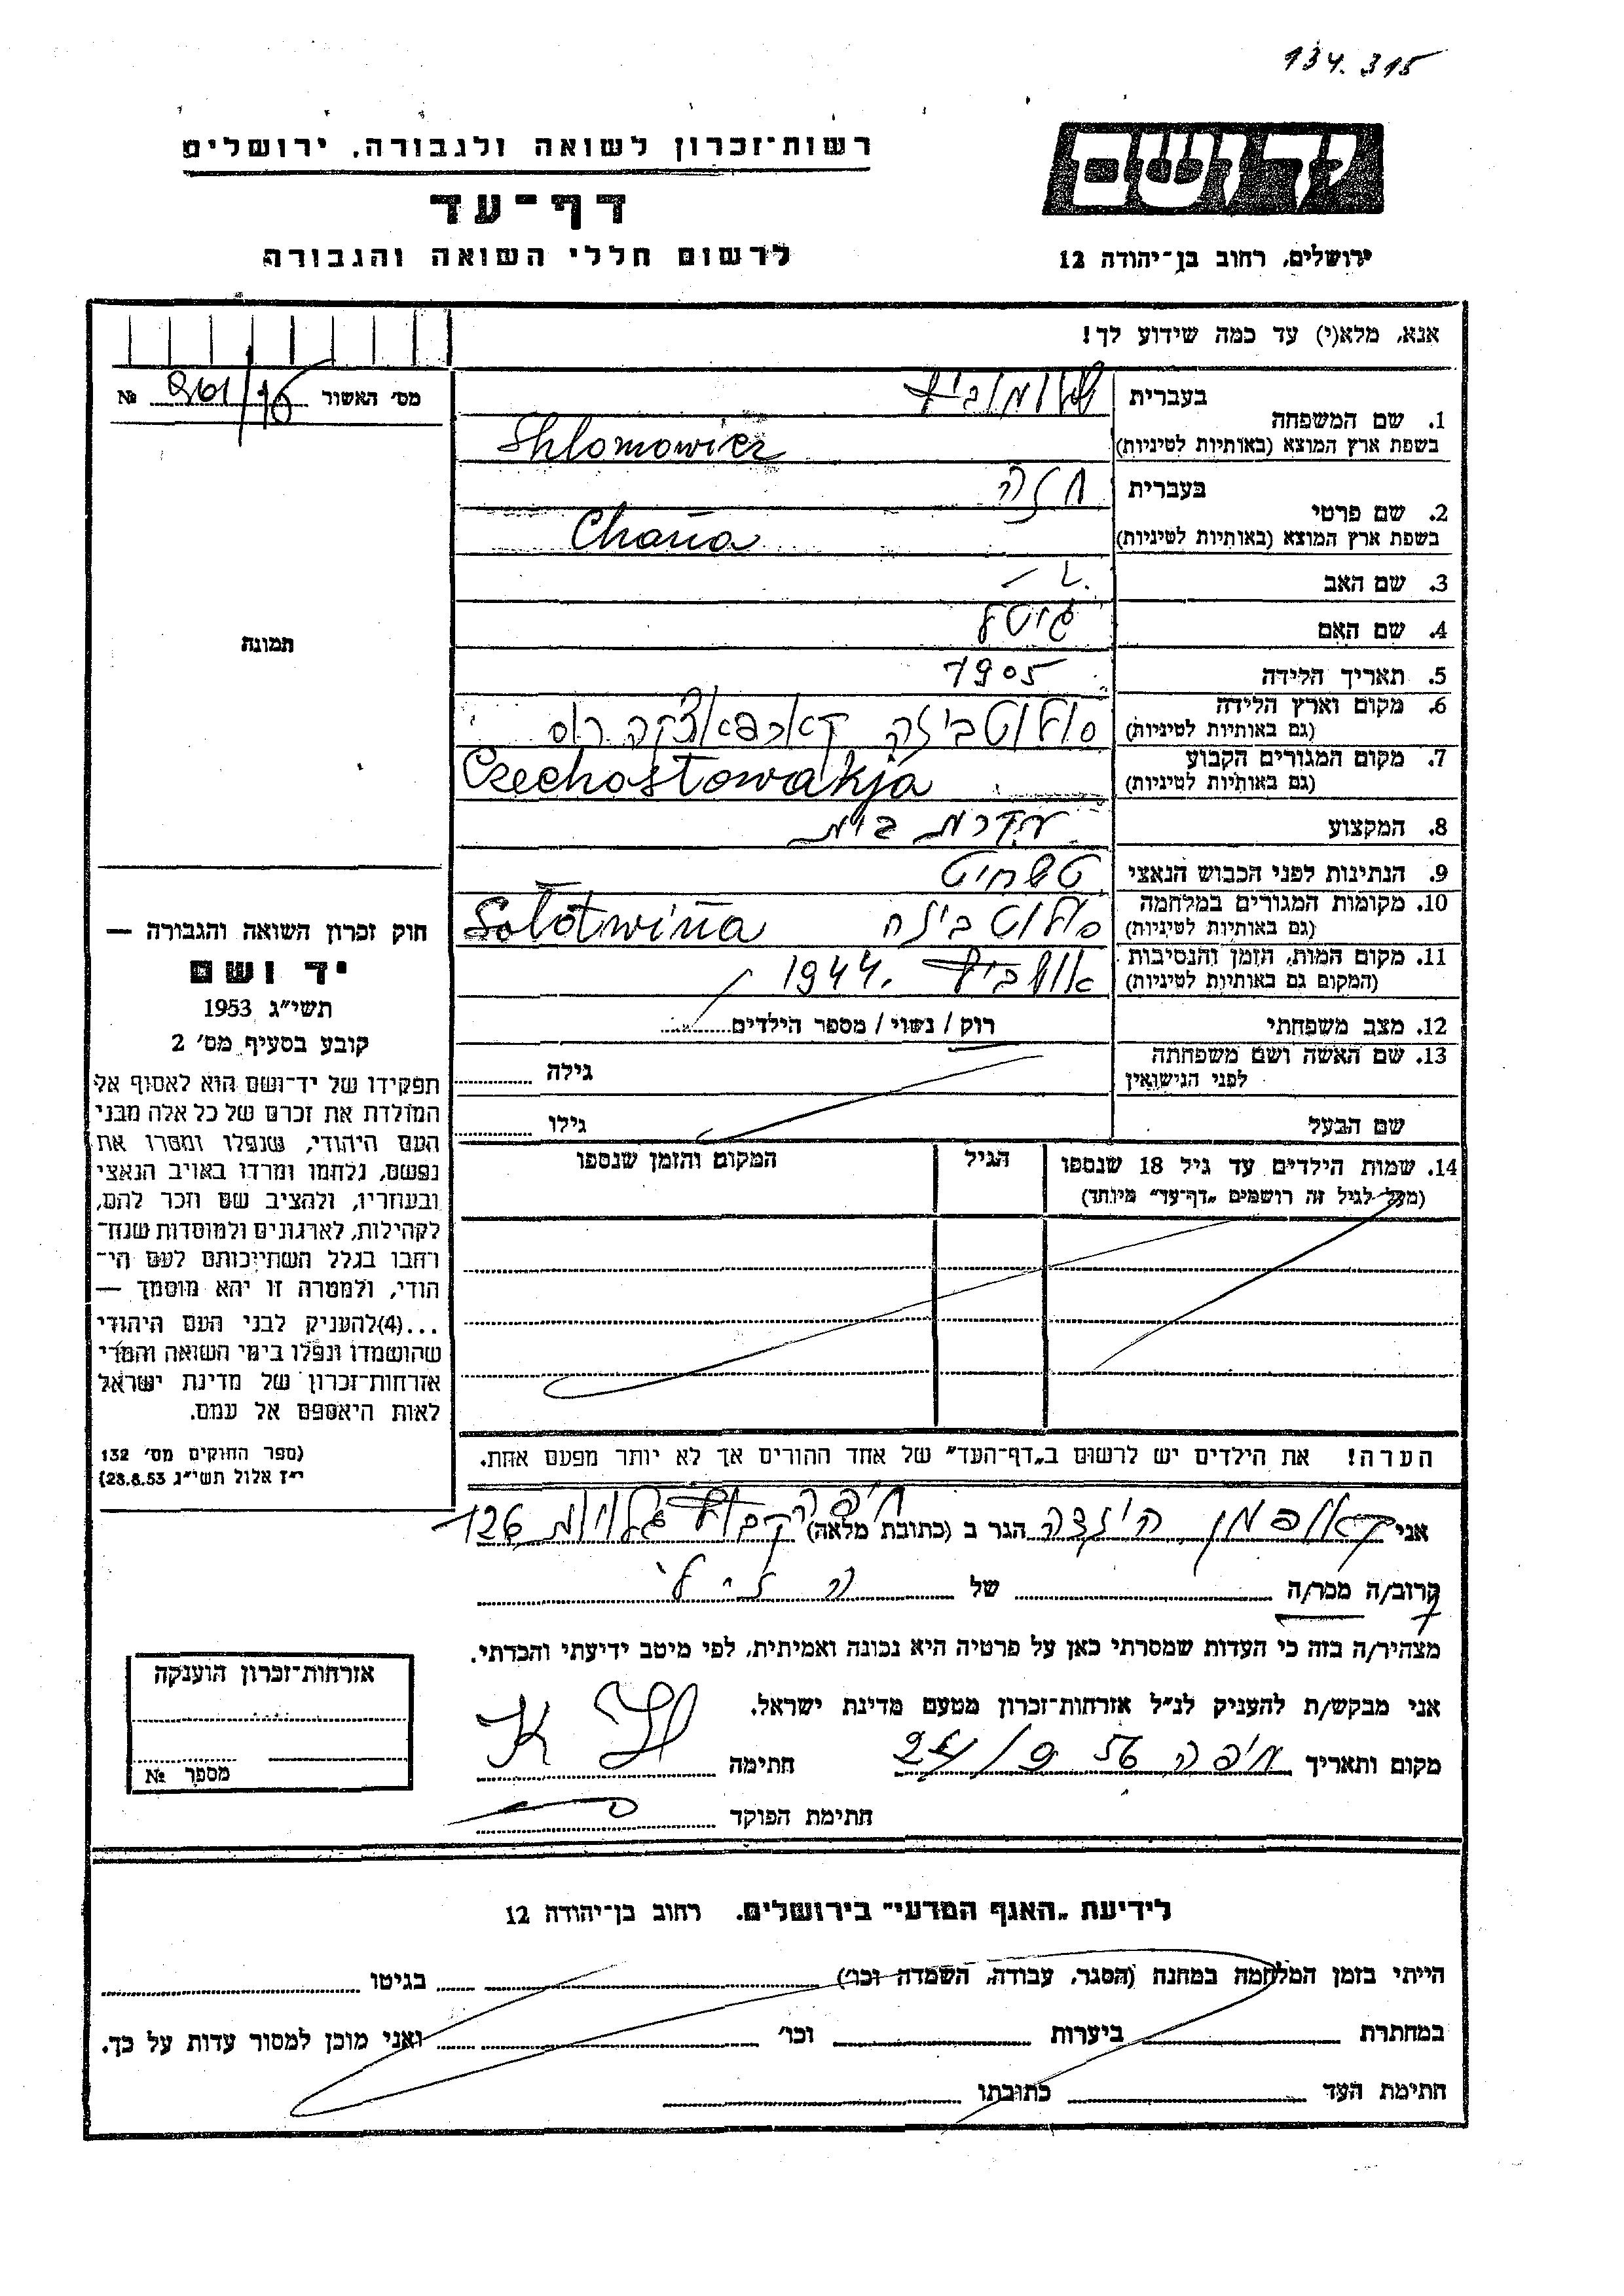 134.315
רשות־זכרון לשואה ולגבורה, ירושלים
יד ושם
דף־עד
לרשום חללי השואה והגבורה
ירושלים, רחוב בן־יהודה 12
אנא, מלא(י) עד כמה שידוע לך!
מס׳ האשור №
1. שם המשפחה
בעברית שלומוביץ
בשפת ארץ המוצא (באותיות לטיניות) Shlomowicz
2. שם פרטי
בעברית חנה
בשפת ארץ המוצא (באותיות לטיניות) Chana
3. שם האב
4. שם האם גיטל
5. תאריך הלידה 1905
6. מקום וארץ הלידה סולוטבינה קארפאטצקה רוס
(גם באותיות לטיניות)
7. מקום המגורים הקבוע Czechosłowakja
(גם באותיות לטיניות)
8. המקצוע עקרת בית
9. הנתינות לפני הכבוש הנאצי
10. מקומות המגורים במלחמה סולוטבינה Sołotwina
(גם באותיות לטיניות)
11. מקום המות, הזמן והנסיבות אושביץ 1944.
(המקום גם באותיות לטיניות)
12. מצב משפחתי רוק / נשוי / מספר הילדים
13. שם האשה ושם משפחתה גילה
לפני הנישואין
שם הבעל גילו
14. שמות הילדים עד גיל 18 שנספו הגיל המקום והזמן שנספו
(מעל לגיל זה רושמים „דף־עד״ מיוחד)
הערה! את הילדים יש לרשום ב„דף־העד״ של אחד ההורים אך לא יותר מפעם אחת.
תמונה
חוק זכרון השואה והגבורה —
יד ושם
תשי״ג 1953
קובע בסעיף מס׳ 2
תפקידו של יד־ושם הוא לאסוף אל
המולדת את זכרם של כל אלה מבני
העם היהודי, שנפלו ומסרו את
נפשם, נלחמו ומרדו באויב הנאצי
ובעוזריו, ולהציב שם וזכר להם,
לקהילות, לארגונים ולמוסדות שנח־
רחבו בגלל השתייכותם לעם הי־
הודי, ולמטרה זו יהא מוסמך —
...(4)להעניק לבני העם היהודי
שהושמדו ונפלו בימי השואה והמרי
אזרחות־זכרון של מדינת ישראל
לאות היאספם אל עמם.
(ספר החוקים מס׳ 132
י״ז אלול תשי״ג 28.8.53)
אני קאופמן הינדה הגר ב (כתובת מלאה) חיפה קבוץ גלויות 126
קרוב/ה מכר/ה של הנ״ל
מצהיר/ה בזה כי העדות שמסרתי כאן על פרטיה היא נכונה ואמיתית, לפי מיטב ידיעתי והכרתי.
אני מבקש/ת להעניק לנ״ל אזרחות־זכרון מטעם מדינת ישראל.
מקום ותאריך חיפה חתימה K H
חתימת הפוקד
אזרחות־זכרון הוענקה
מספר №
לידיעת „האגף המדעי״ בירושלים, רחוב בן־יהודה 12
הייתי בזמן המלחמה במחנה (הסגר, עבודה, השמדה וכו׳) בגיטו
במחתרת ביערות וכו׳ ואני מוכן למסור עדות על כך.
חתימת העד כתובתו